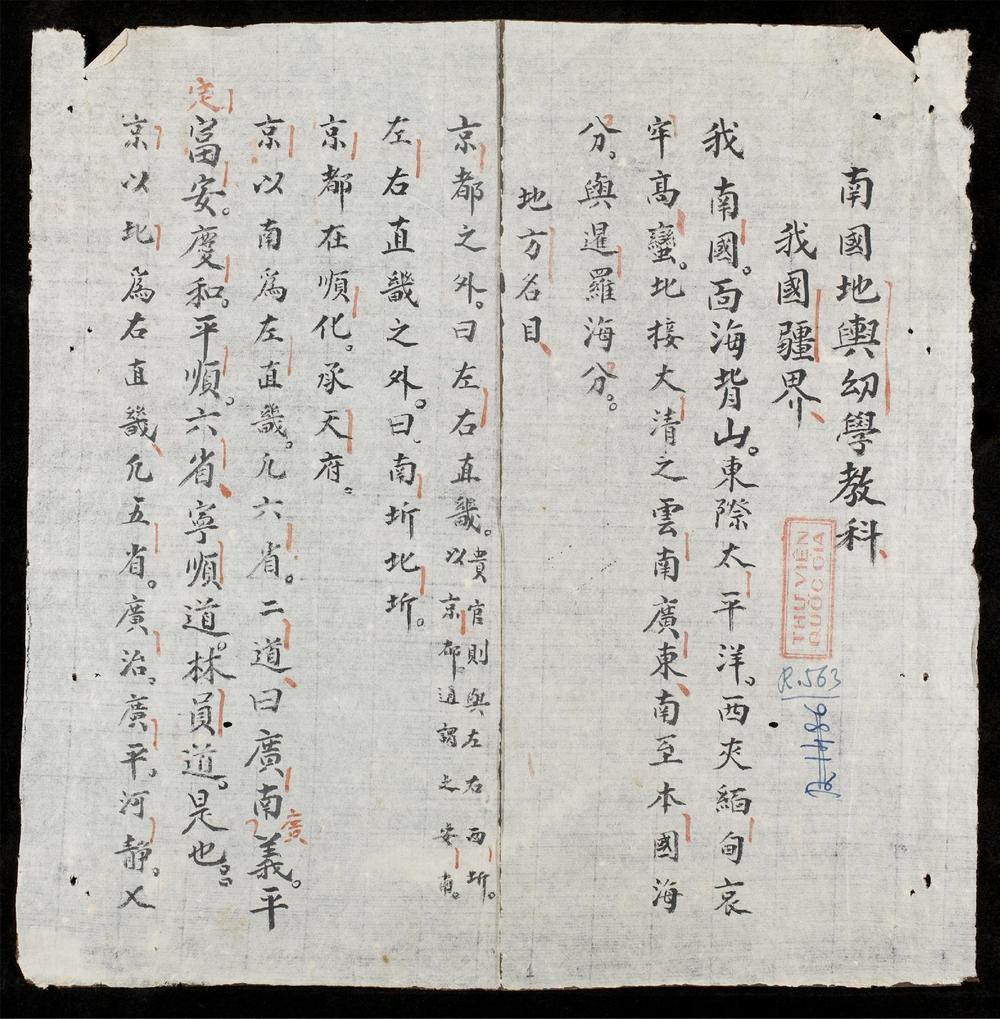 南國地輿幼學教科
我國疆界
我南國。面海背山。東際太平洋。西夾緬甸哀
牢高蠻。北接大清之雲南廣東、南至本國海
分。與暹羅海分。
地方名目、
京都之外。曰左右直畿。貴官則與左右兩圻。
以京都。通謂之安南。
左右直畿之外。曰南圻北圻。
京都在順化。承天府。
京以南爲左直畿。凢六省。二道、曰廣南
廣
義。平
定
富安。慶和。平順。六省、寧順道。林員道。是也。
京以北爲右直畿、凢五省。廣治。廣平。河静。乂
THƯ VIỆN
QUỐC GIA
R.563
1